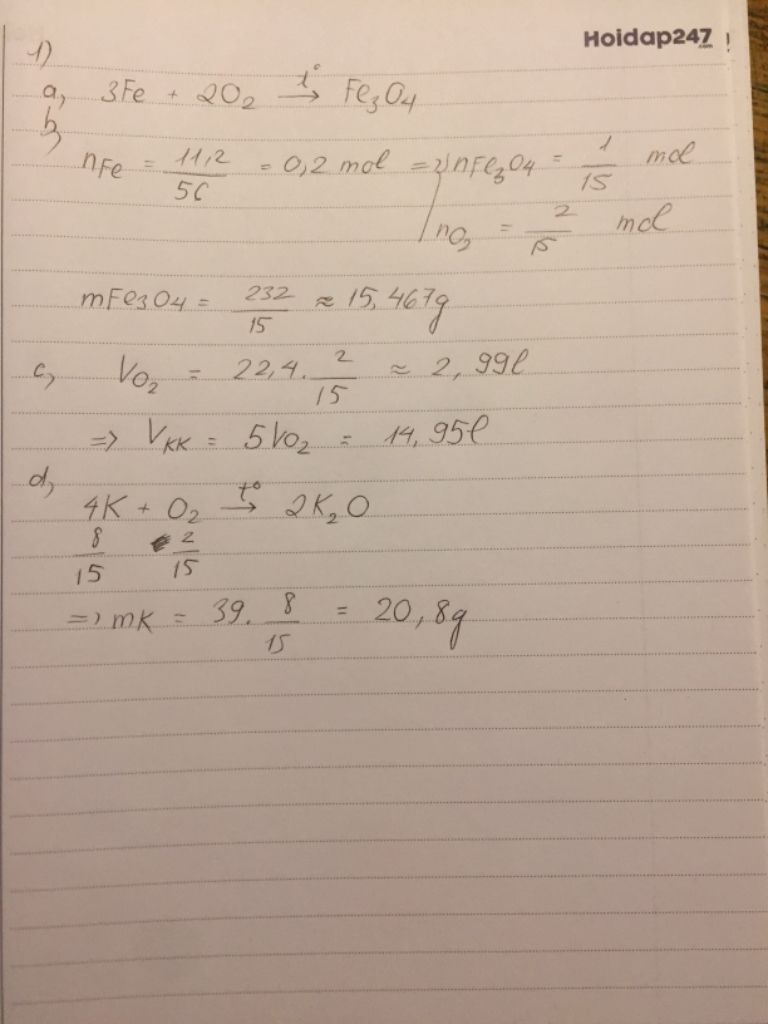 Hoidap247.com
1)
a, 3Fe + 2O₂ →t° Fe₃O₄
b,
nFe = 11,2/56 = 0,2 mol => nFe₃O₄ = 1/15 mol
nO₂ = 2/15 mol
mFe₃O₄ = 232/15 ≈ 15,467g
c, VO₂ = 22,4 . 2/15 ≈ 2,99l
=> VKK = 5VO₂ = 14,95l
d,
4K + O₂ →t° 2K₂O
8/15 2/15
=> mK = 39 . 8/15 = 20,8g